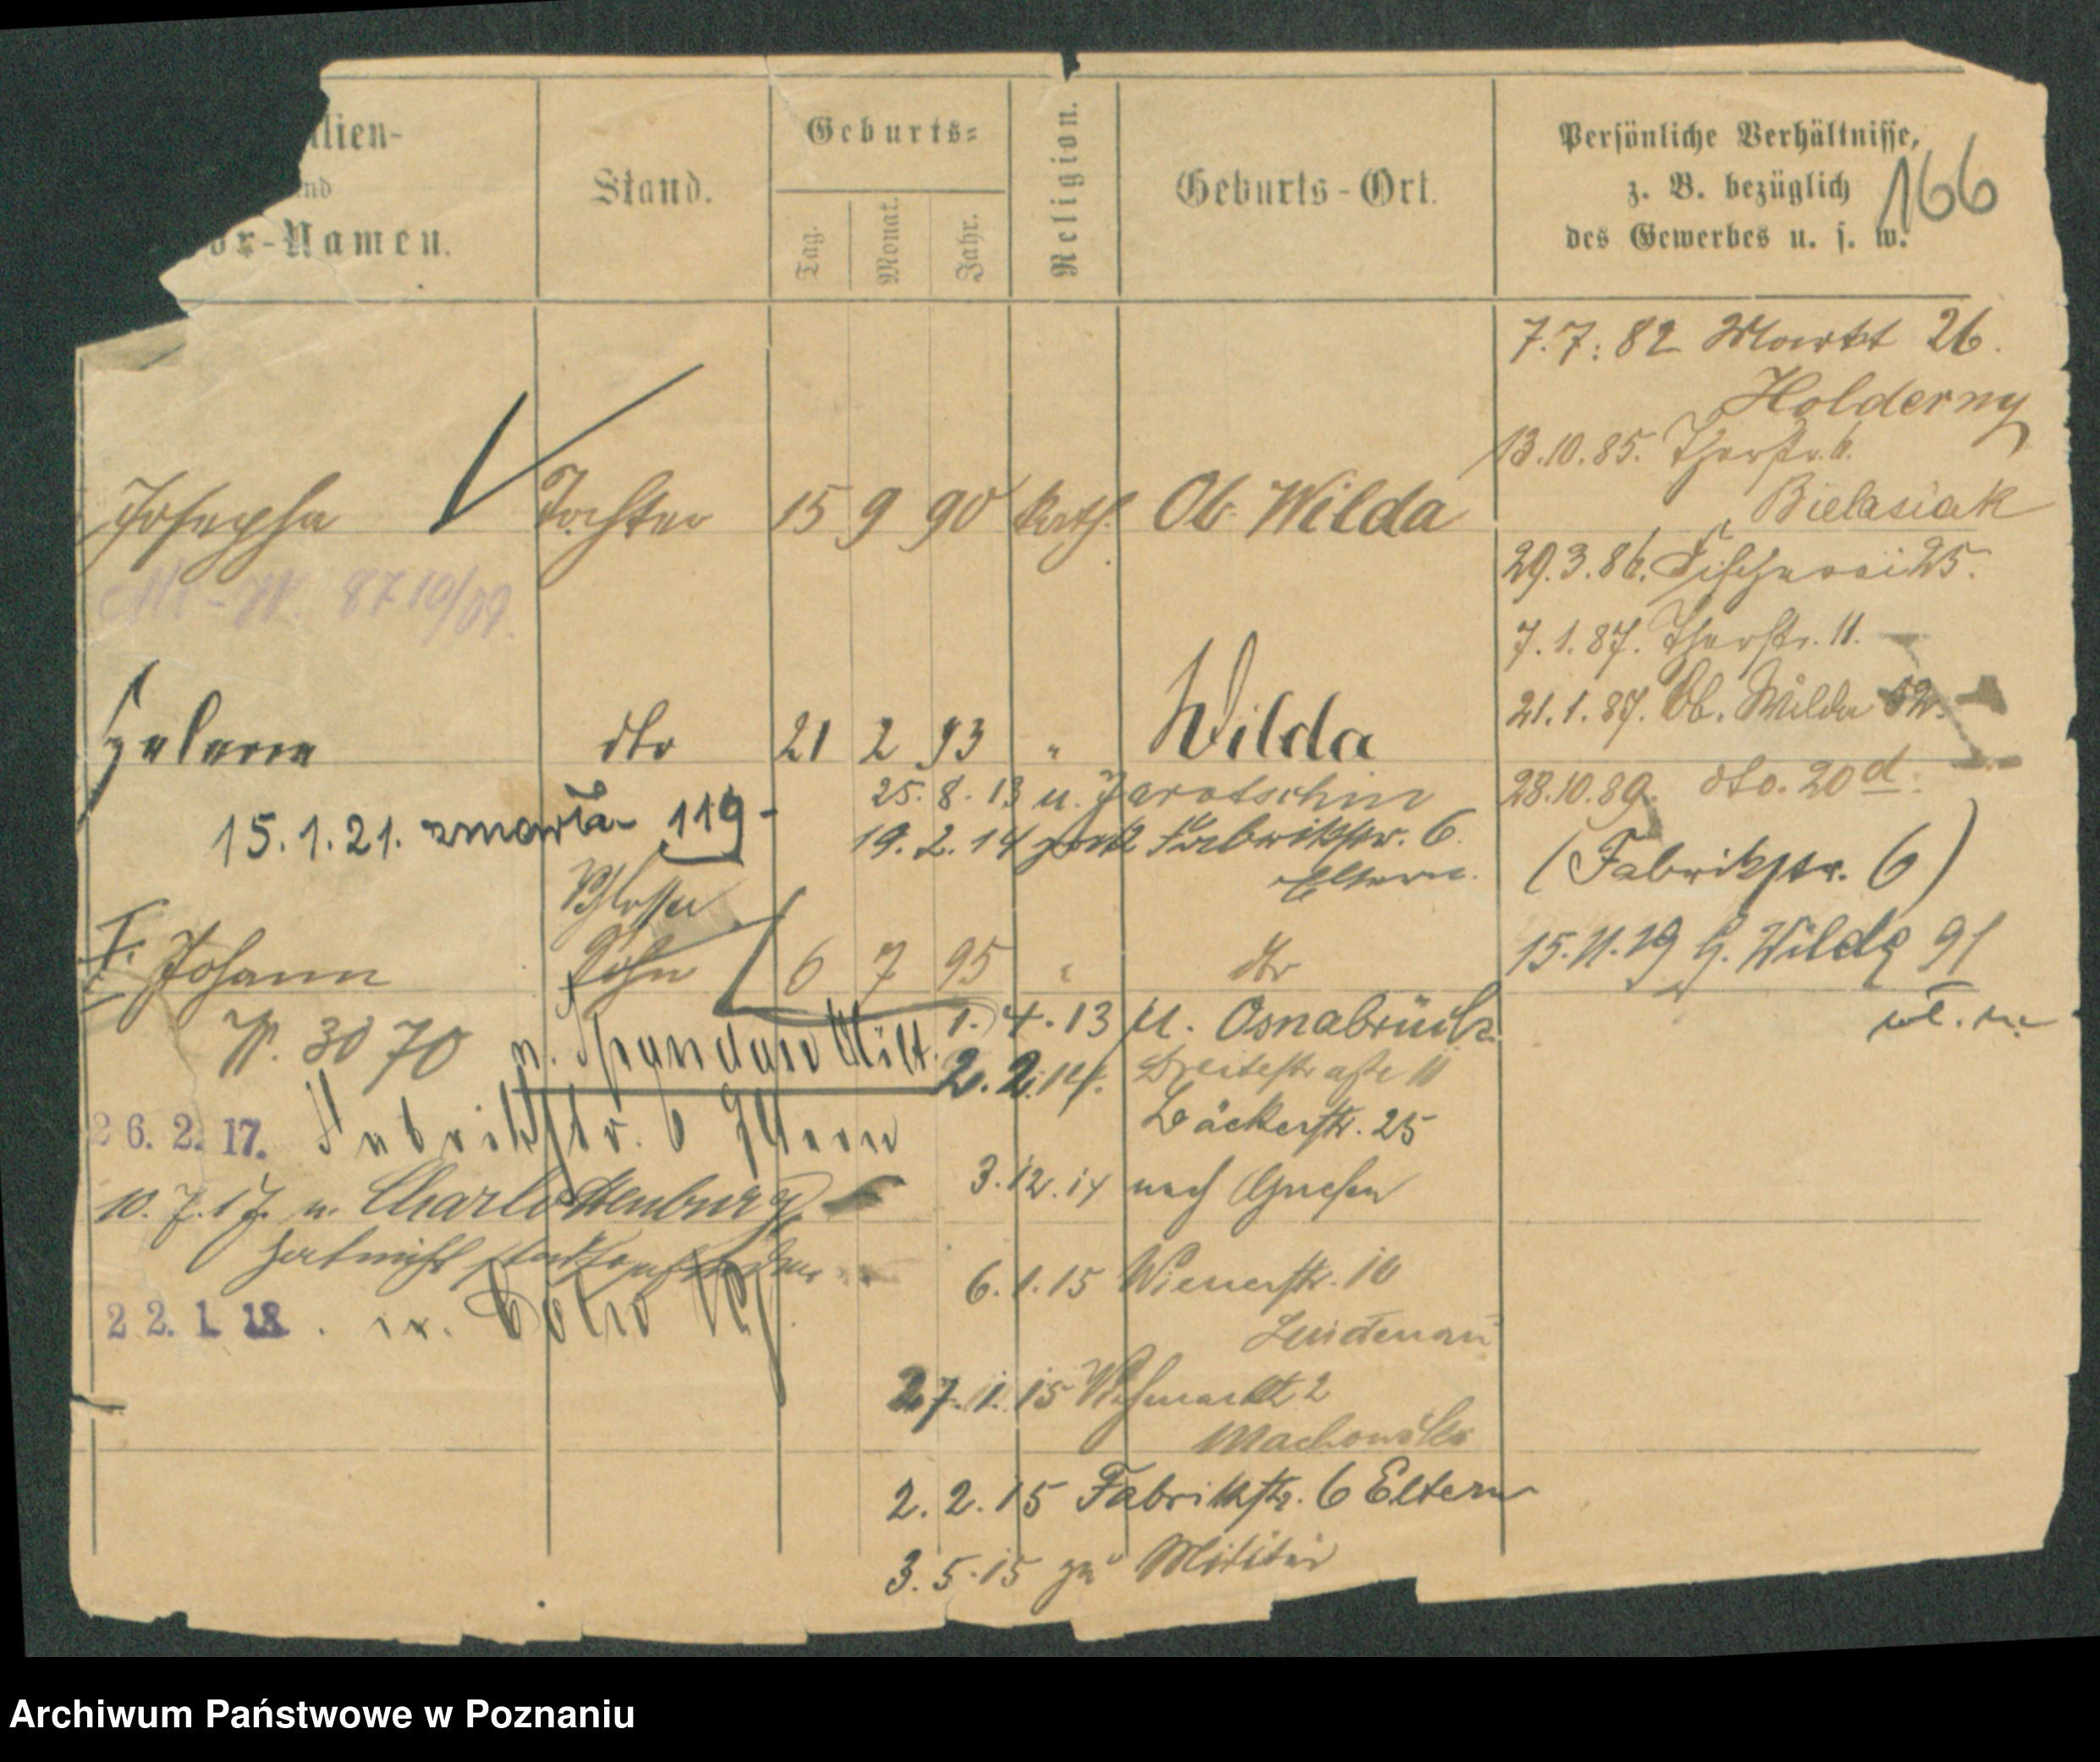 lien-
nd
or-Namen.
Stand.
Geburts-
Tag.
Monat.
Jahr.
Religion.
Geburts-Ort.
Persönliche Verhältnisse,
z. B. bezüglich
des Gewerbes u. s. w.
166
7.7.82 Markt 26.
Holderny
13.10.85. Thorstr. 6.
Bielasiak
Josepha Tochter 15 9 90 kath. Ob. Wilda
29.3.86. Fischerei 25.
8710/09.
7.1.87. Thorstr. 11.
21.1.87. Ob. Wilda
Helene dto 21 2 93 " Wilda
28.10.89. dto. 20 d.
25.8.13 u. Jarotschin
15.1.21. zmarła 119-
19.2.14 zurück Fabrikstr. 6
Eltern.
(Fabrikstr. 6)
Schlosser
Johann Sohn 6 7 95 " dto
15.11.19 G. Wilda 91
1.4.13 n. Osnabrück
W. 3070 n. Spandau Milit.
2.2.14. Breitestraße 11
Bäckerstr. 25
26.2.17. Fabrikstr. 6 Eltern
10.7.17. n. Charlottenburg
3.12.14 nach Gnesen
hat nicht stattgefunden
6.1.15 Wienerstr. 10
Lindenau
22.1.18.
27.1.15 Viehmarkt 2
Machowski
2.2.15 Fabrikstr. 6 Eltern
3.5.15 zu Militär
Archiwum Państwowe w Poznaniu